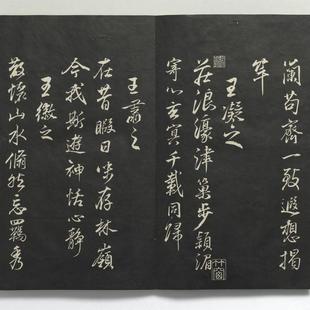 蘭苟齊一致遐想揭
竿
王凝之
莊浪濠津巢步潁湄
寄心玄冥千載同歸
王肅之
在昔暇日味存林嶺
今我斯遊神怡心靜
王徽之
散懷山水然忘羈秀